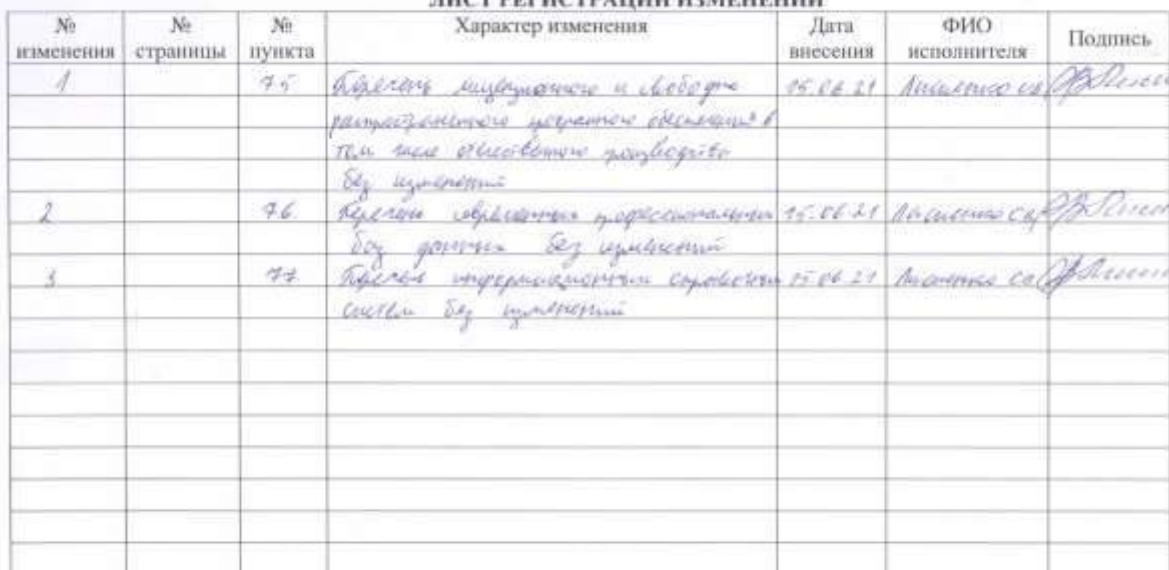 ЛИСТ РЕГИСТРАЦИИ ИЗМЕНЕНИЙ
№ изменения № страницы № пункта Характер изменения Дата внесения ФИО исполнителя Подпись
1 7.5 Перечень лицензионного и свободно 15.06.21
распространенного програмного обеспечения в
том числе отечественного производства
без изменений
2 7.6. Перечень современных профессиональных 15.06.21
баз данных без изменений
3 7.7. Перечень информационных справочных 15.06.21
систем без изменений